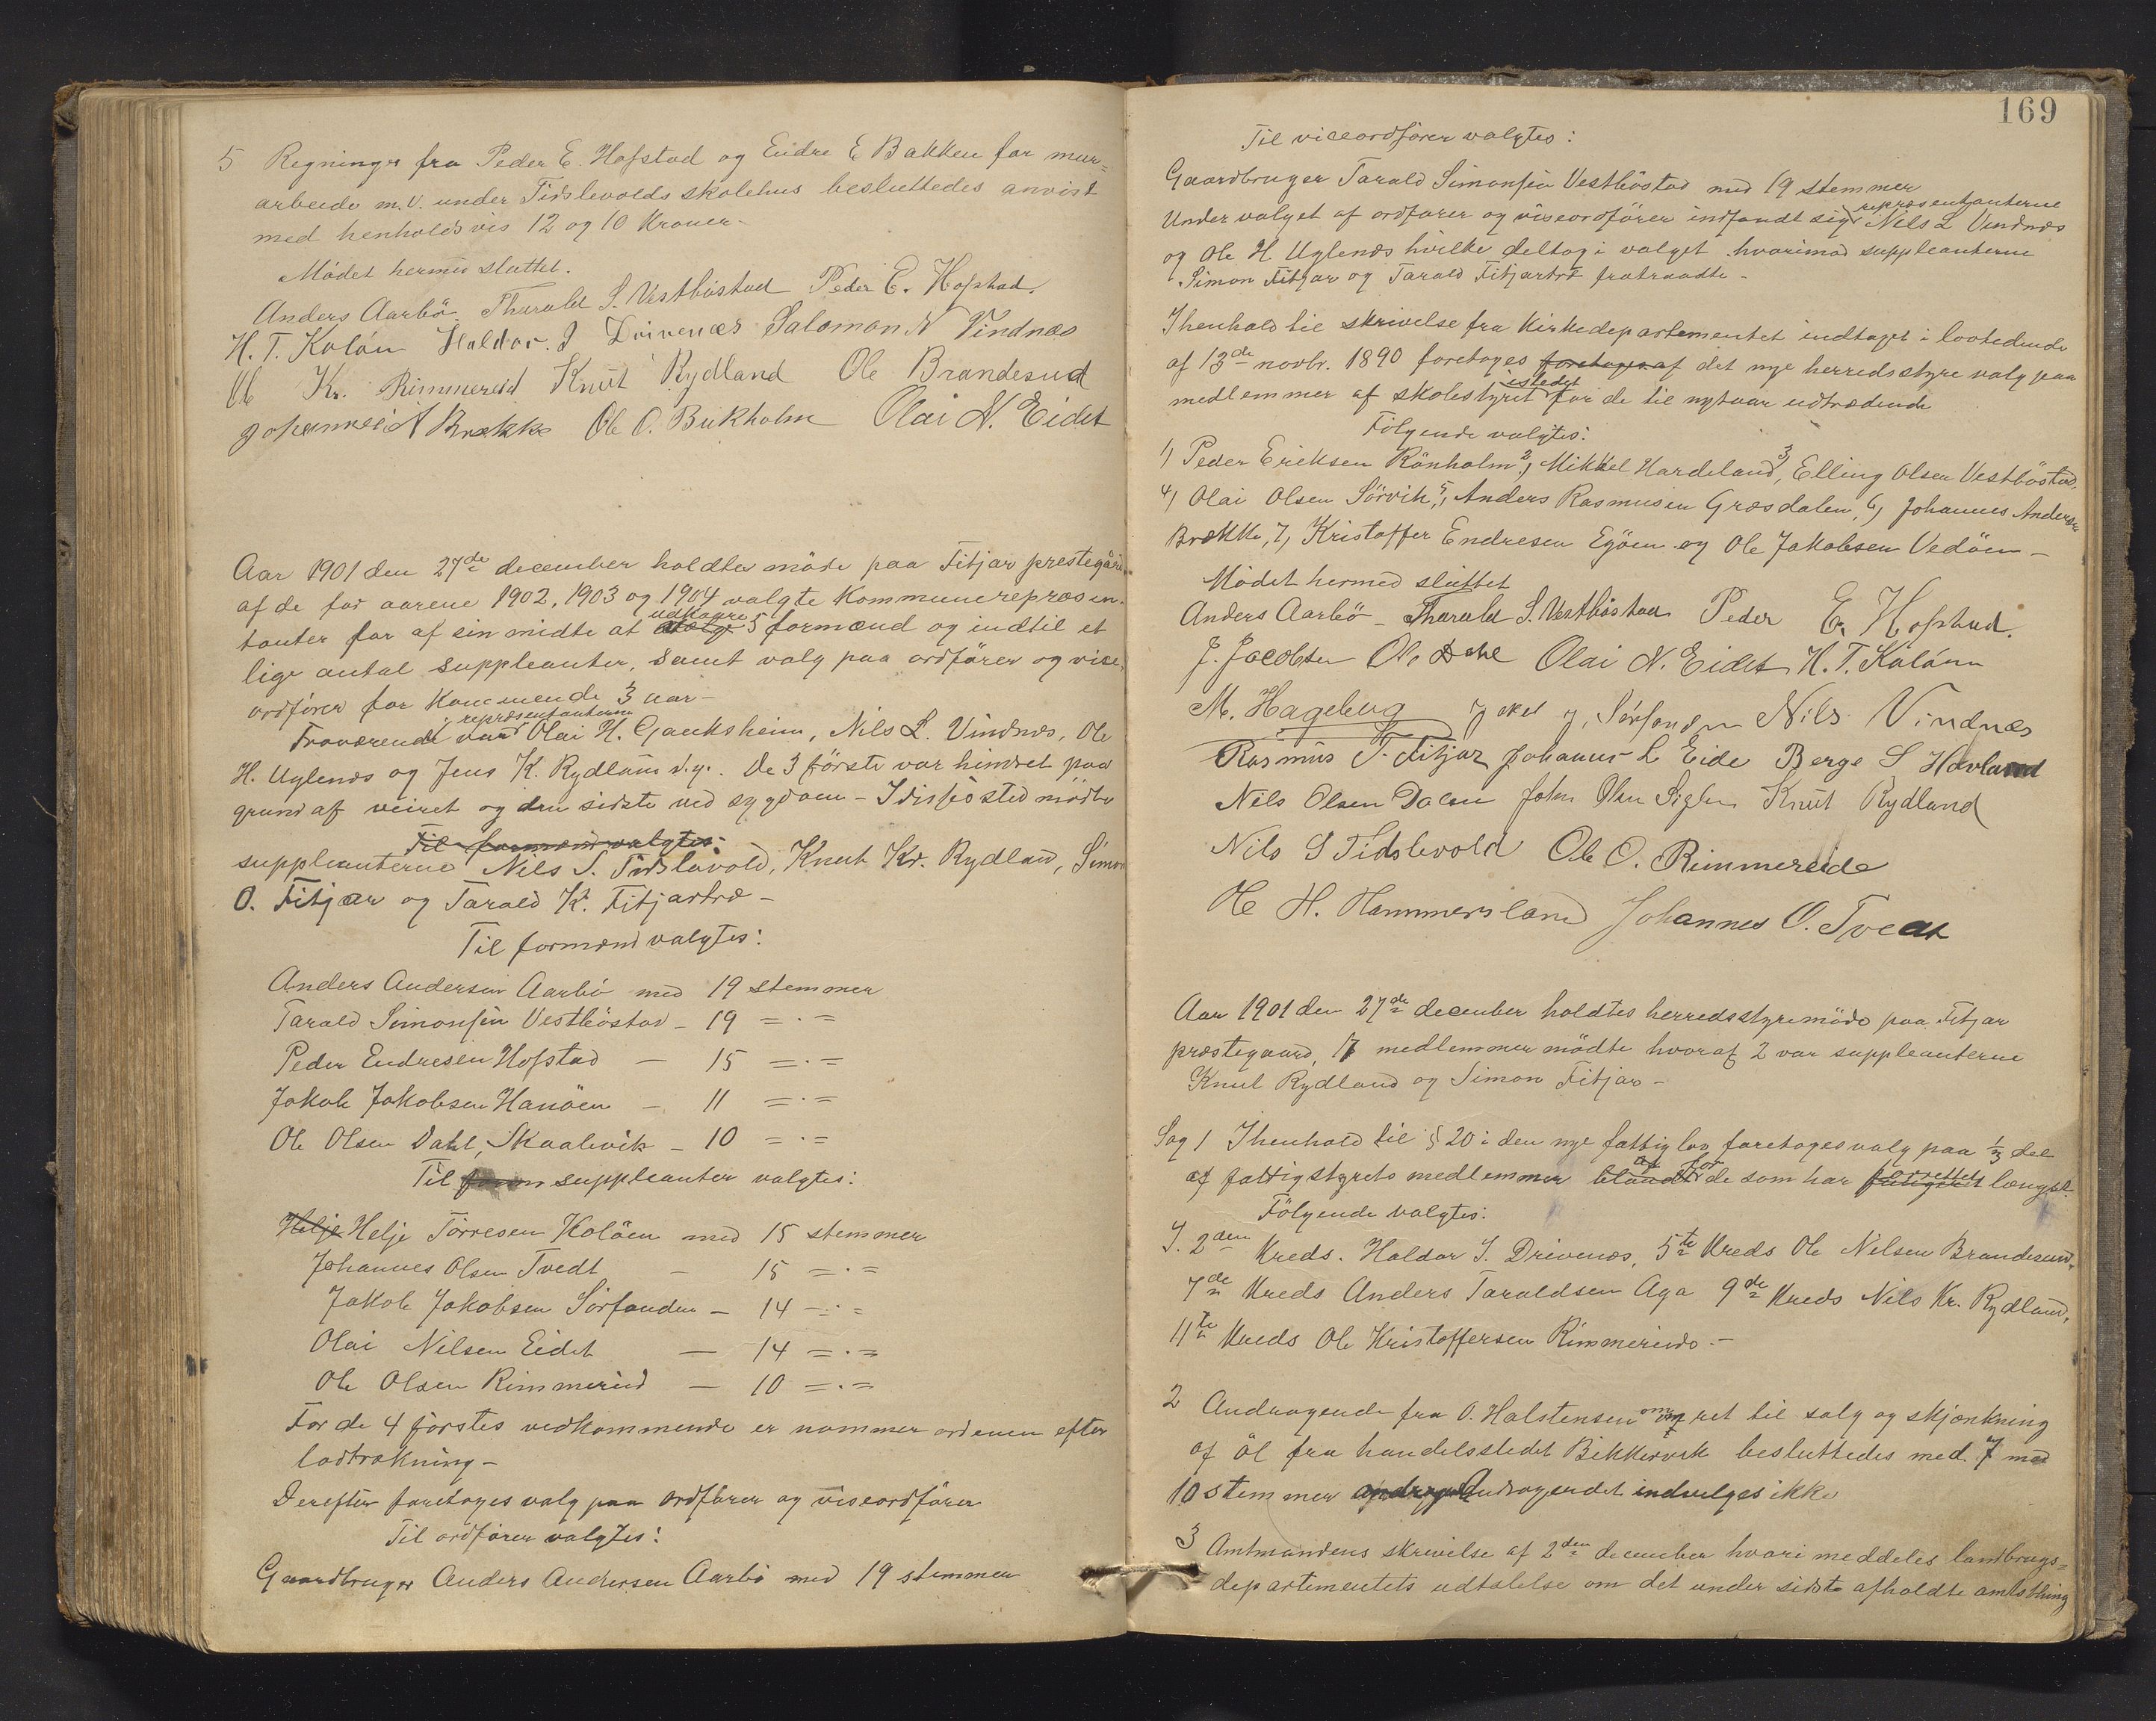 5 Regninger fra Peder E. Hofstad og Endre E Bakken for mur=
arbeide m.v. under Tidslevolds skolehus besluttedes anvist
med henholdsvis 12 og 10 Kroner-
Mödet hermed sluttet.
Anders Aarbö. Tharald S. Vestböstad Peder E. Hofstad.
H. T. Kolóen Haldor. J Drivenes Salomon N Vindnæs
Ole Kr. Rimmereid Knut Rydland Ole Brandesund
Johannes A Brække Ole O. Bukholm Olai N. Eidet
Aar 1901 den 27de december holdtes möde paa Fitjar prestegård
af de for aarene 1902, 1903 og 1904 valgte Kommunerepræsen-
tanter for af sin midte at udkaare 5 formænd og indtil et
lige antal suppleanter, samt valg paa ordförer og vise-
ordförer for kommende 3 aar-
Fraværende var repræsentanterne Olai H. Gauksheim, Nils L. Vindnes, Ole
H. Uglenes og Jens K. Rydland d.y. De 3 förste var hindret paa
grund af veiret og den sidste ved sygdom - I disses sted mödte
Til formænd valgtes:
suppleanterne Nils S. Tidslevold, Knut Kr. Rydland, Simon
O. Fitjar og Tarald K. Fitjartræ -
Til formænd valgtes:
Anders Andersen Aarbö med 19 stemmer
Tarald Simonsen Vestböstad - 19 = · =
Peder Endresen Hofstad - 15 = · =
Jakob Jakobsen Hanöen - 11 = · =
Ole Olsen Dahl, Skaalevik - 10 = · =
Til form suppleanter valgtes:
Helje Helje Törresen Kolöen med 15 stemmer
Johannes Olsen Tvedt - 15 = · =
Jakob Jakobsen Sörfonden - 14 = · =
Olai Nilsen Eidet - 14 = · =
Ole Olsen Rimmereid - 10 = · =
For de 4 förstes vedkommende er nommer ordenen efter
lodtrækning -
Derefter foretages valg paa ordförer og viseordförer
Til ordförer valgtes:
Gaardbruger Anders Andersen Aarbö med 19 stemmer
169
Til viceordförer valgtes:
Gaardbruger Tarald Simonsen Vestböstad med 19 stemmer
Under valget af ordförer og viseordförer indfandt sig repræsentanterne Nils L Vindnæs
og Ole H. Uglenæs hvilke deltog i valget hvorimod suppleanterne
Simon Fitjar og Tarald Fitjartræ fratraadte -
I henhold til skrivelse fra Kirkedepartementet indtaget i lovtidende
af 13de novbr. 1890 foretages foretages af det nye herredsstyre valg paa
medlemmer af skolestyret istedet for de til nytaar udtrædende
Fölgende valgtes:
1, Peder Eriksen Rönholm 2, Mikkel Hardeland 3, Elling Olsen Vestböstad,
4, Olai Olsen Sörvik, 5, Anders Rasmusen Græsdalen, 6, Johannes Andersen
Brække, 7, Kristoffer Endresen Egöen og Ole Jakobsen Vedöen -
Mödet hermed sluttet
Anders Aarbö - Tharald S. Vestböstad Peder E. Hofstad.
J. Jacobsen Ole Dahl Olai N. Eidet H. T. Kolöen
M. Hageberg Jakob J. Sörfonden Nils Vindnæs
Rasmus T. Fitjar Johannes L Eide Berge S Hovland
Nils Olsen Dalen John Olsen Knut Rydland
Nils S Tidslevold Ole O. Rimmereide
Ole H. Hammersland Johannes O. Tvedt
Aar 1901 den 27de december holdtes herredsstyremöde paa Fitjar
præstegaard, 17 medlemmer mödte hvoraf 2 var suppleanterne
Knut Rydland og Simon Fitjar -
Sag 1 I henhold til § 20 i den nye fattiglov foretages valg paa 1/3 del
af fattigstyrets medlemmer blandt af for de som har forrettet længst.
Fölgende valgtes:
I. 2den Kreds. Haldor J. Drivenes, 5te Kreds Ole Nilsen Brandesund,
7de Kreds Anders Taraldsen Aga 9de Kreds Nils Kr. Rydland,
11te Kreds Ole Kristoffersen Rimmereide -
2 Andragende fra O. Halstensen om ret til salg og skjænkning
af öl fra handelsstedet Bekkervik besluttedes med 7 mod
10 stemmer Andragendet indvelges ikke
3 Amtmandens skrivelse af 2den december hvori meddeles landbrugs=
departementets udtalelse om det under sidste afholdte amtsthing